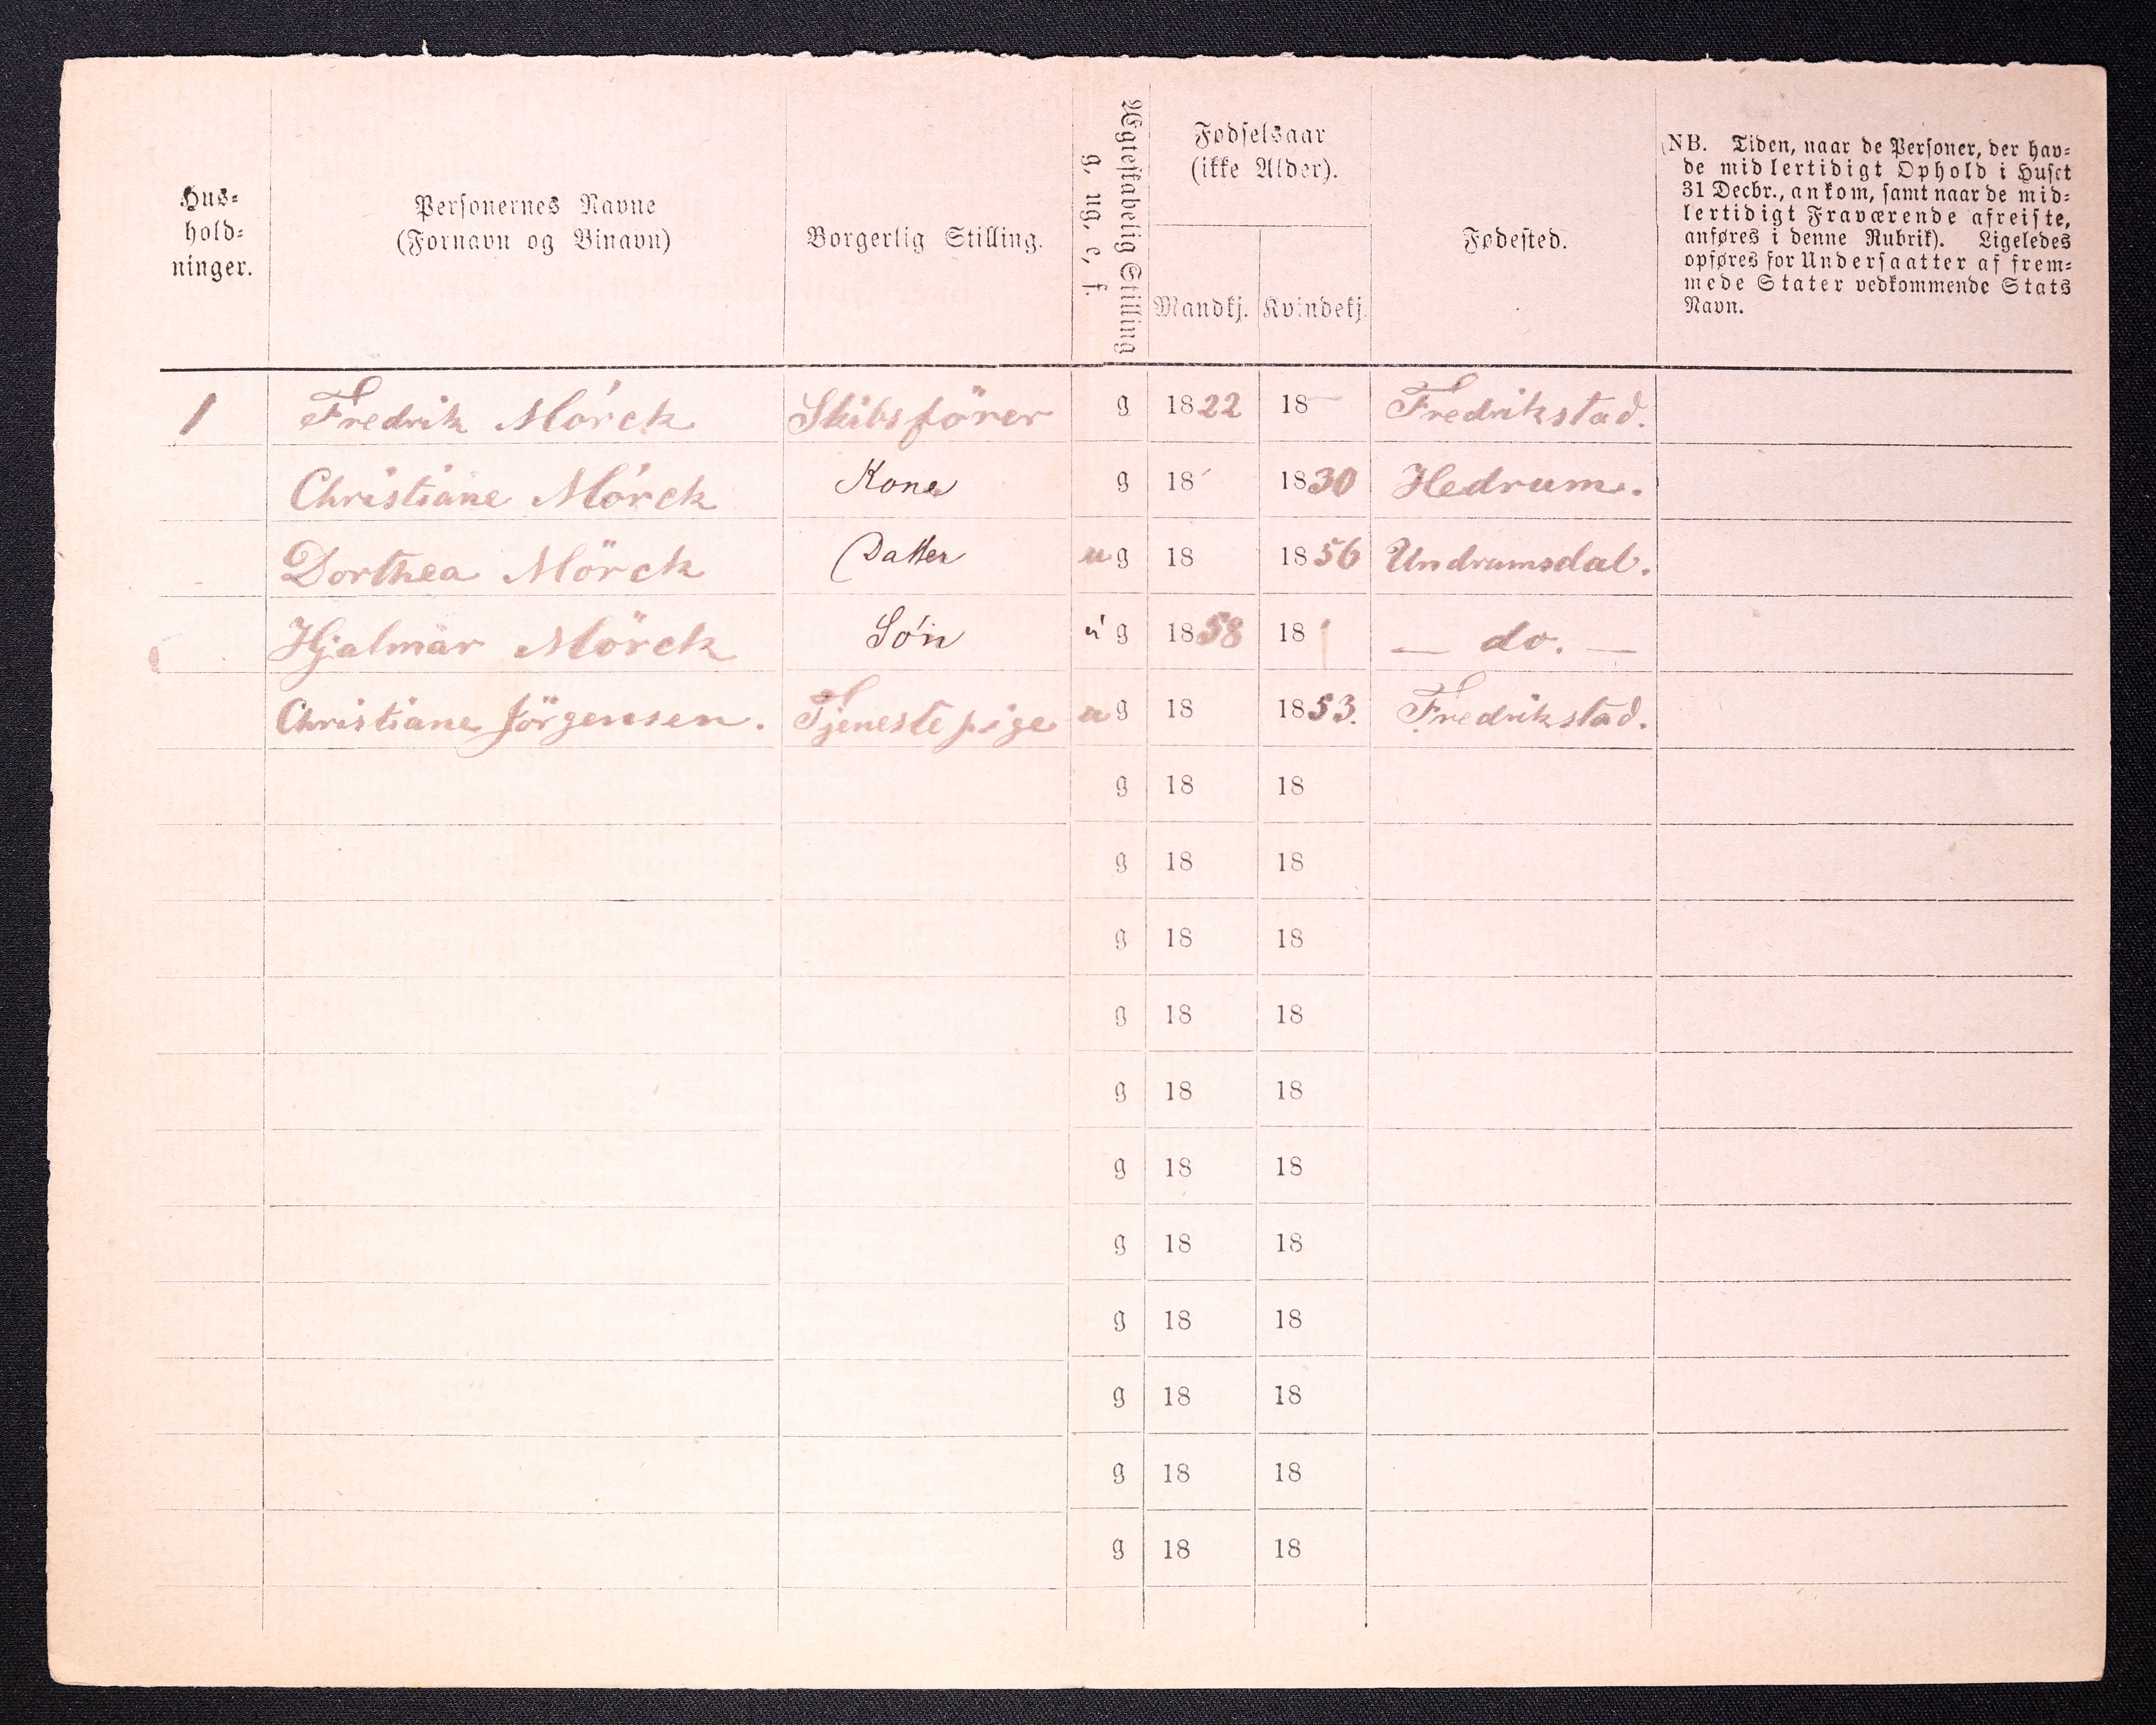 Hus-
hold-
ninger.
Personernes Navne
(Fornavn og Binavn)
Borgerlig Stilling.
Ægteskabelig Stilling
g. ug. e. f.
Fødselsaar
(ikke Alder).
Mandkj.
Kvindekj.
Fødested.
(NB. Tiden, naar de Personer, der hav-
de midlertidigt Ophold i Huset
31 Decbr., ankom, samt naar de mid-
lertidigt Fraværende afreiste,
anføres i denne Rubrik). Ligeledes
opføres for Undersaatter af frem-
mede Stater vedkommende Stats
Navn.
1 Fredrik Mörck Skibsförer g 1822 18 Fredrikstad.
Christiane Mörck Kone g 18 1830 Hedrum.
Dorthea Mörck Datter ug 18 1856 Undrumsdal.
Hjalmar Mörck Sön ug 1858 18 — do. —
Christiane Jörgensen. Tjenestepige ug 18 1853. Fredrikstad.
g 18 18
g 18 18
g 18 18
g 18 18
g 18 18
g 18 18
g 18 18
g 18 18
g 18 18
g 18 18
g 18 18